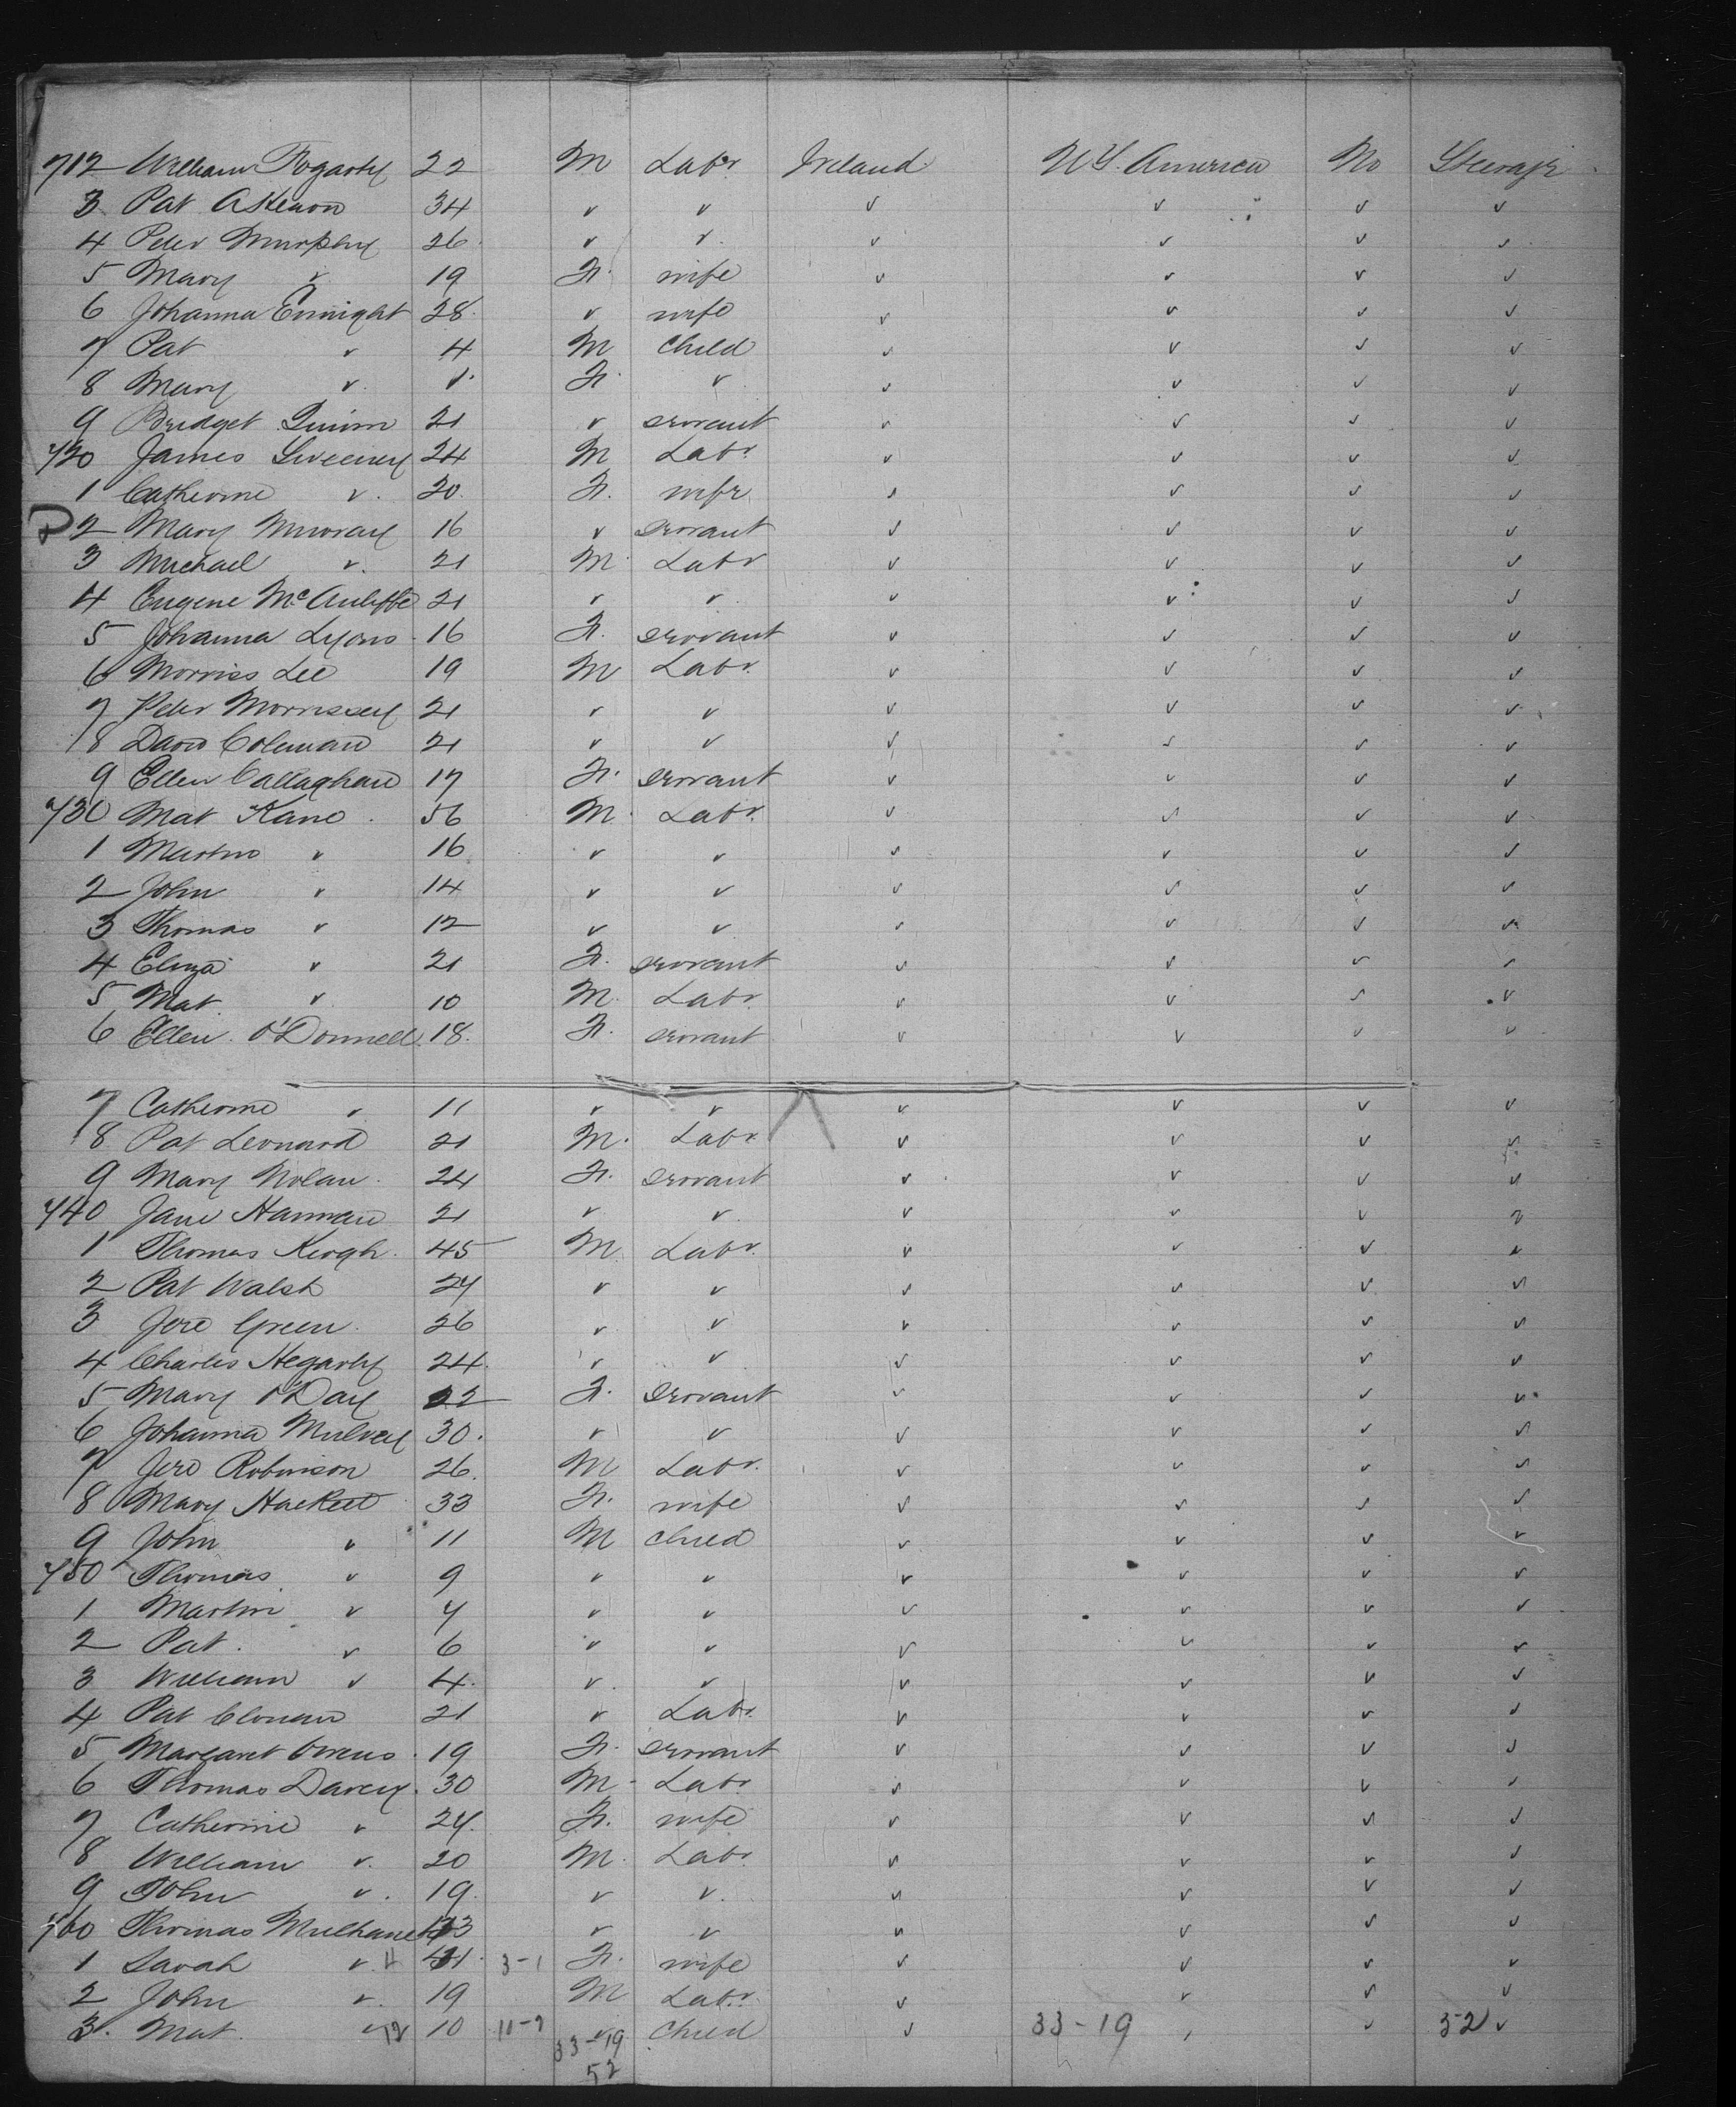 712 William Fogarty 22 M Labr Ireland U S. America No Steerage
3 Pat Ahearn 34 v v v v v v
4 Peter Murphy 26 v v v v v v
5 Mary v 19 F. wife v v v v
6 Johanna Enright 28 v wife v v v v
7 Pat v 4 M Child v v v v
8 Mary v. 1. F. v v v v v
9 Bridget Quinn 21 v servant v v v v
720 James Sweeney 24 M Labr v v v v
1 Catherine v. 20. F. wife v v v v
2 Mary Murray 16 v servant v v v v
3 Michael v. 21 M Labr v v v v
4 Eugene McAuliffe 21 v v v v v v
5 Johanna Lyons 16 F. servant v v v v
6 Morriss Lee 19 M Labr. v v v v
7 Peter Morrissey 21 v v v v v v
8 David Coleman 21 v v v v v v
9 Ellen Callaghan 17 F. servant v v v v
730 Mat Kane 56 M. Labr. v v v v
1 Martin v 16 v v v v v v
2 John v 14 v v v v v v
3 Thomas v 12 v v v v v v
4 Eliza v 21 F. servant v v v v
5 Mat. v 10 M. Labr. v v v v
6 Ellen O'Donnell 18. F. servant v v v v
7 Catherine v 11 v v v v v v
8 Pat Leonard 21 M. Labr. v v v v
9 Mary Nolan 24 F. servant v v v v
740 Jane Hannan 21 v v v v v v
1 Thomas Keogh 45 M. Labr. v v v v
2 Pat Walsh 27 v v v v v v
3 Jere Green 26 v v v v v v
4 Charles Hegarty 24. v v v v v v
5 Mary O'Day 22 F. servant v v v v
6 Johanna Mulvey 30. v v v v v v
7 Jere Robinson 26. M Labr. v v v v
8 Mary Hackett 33 F. wife v v v v
9 John v 11 M child v v v v
750 Thomas v 9 v v v v v v
1 Martin v 7 v v v v v v
2 Pat. v 6 v v v v v v
3 William v 4. v v v v v v
4 Pat 21 v Labr. v v v v
5 Margaret Owens 19 F. servant v v v v
6 Thomas Darcy. 30 M Labr v v v v
7 Catherine v 27. F. wife v v v v
8 William v. 20 M. Labr. v v v v
9 John v. 19. v v. v v v v
760 Thomas 43 v v v v v v
1 Sarah v. 4 41. 3-1 F. wife v v v v
2 John v. 19 M Labr. v v v v
3. Mat. v 12 10 11-7 v child v 33-19 v v 52 v
33-19
52